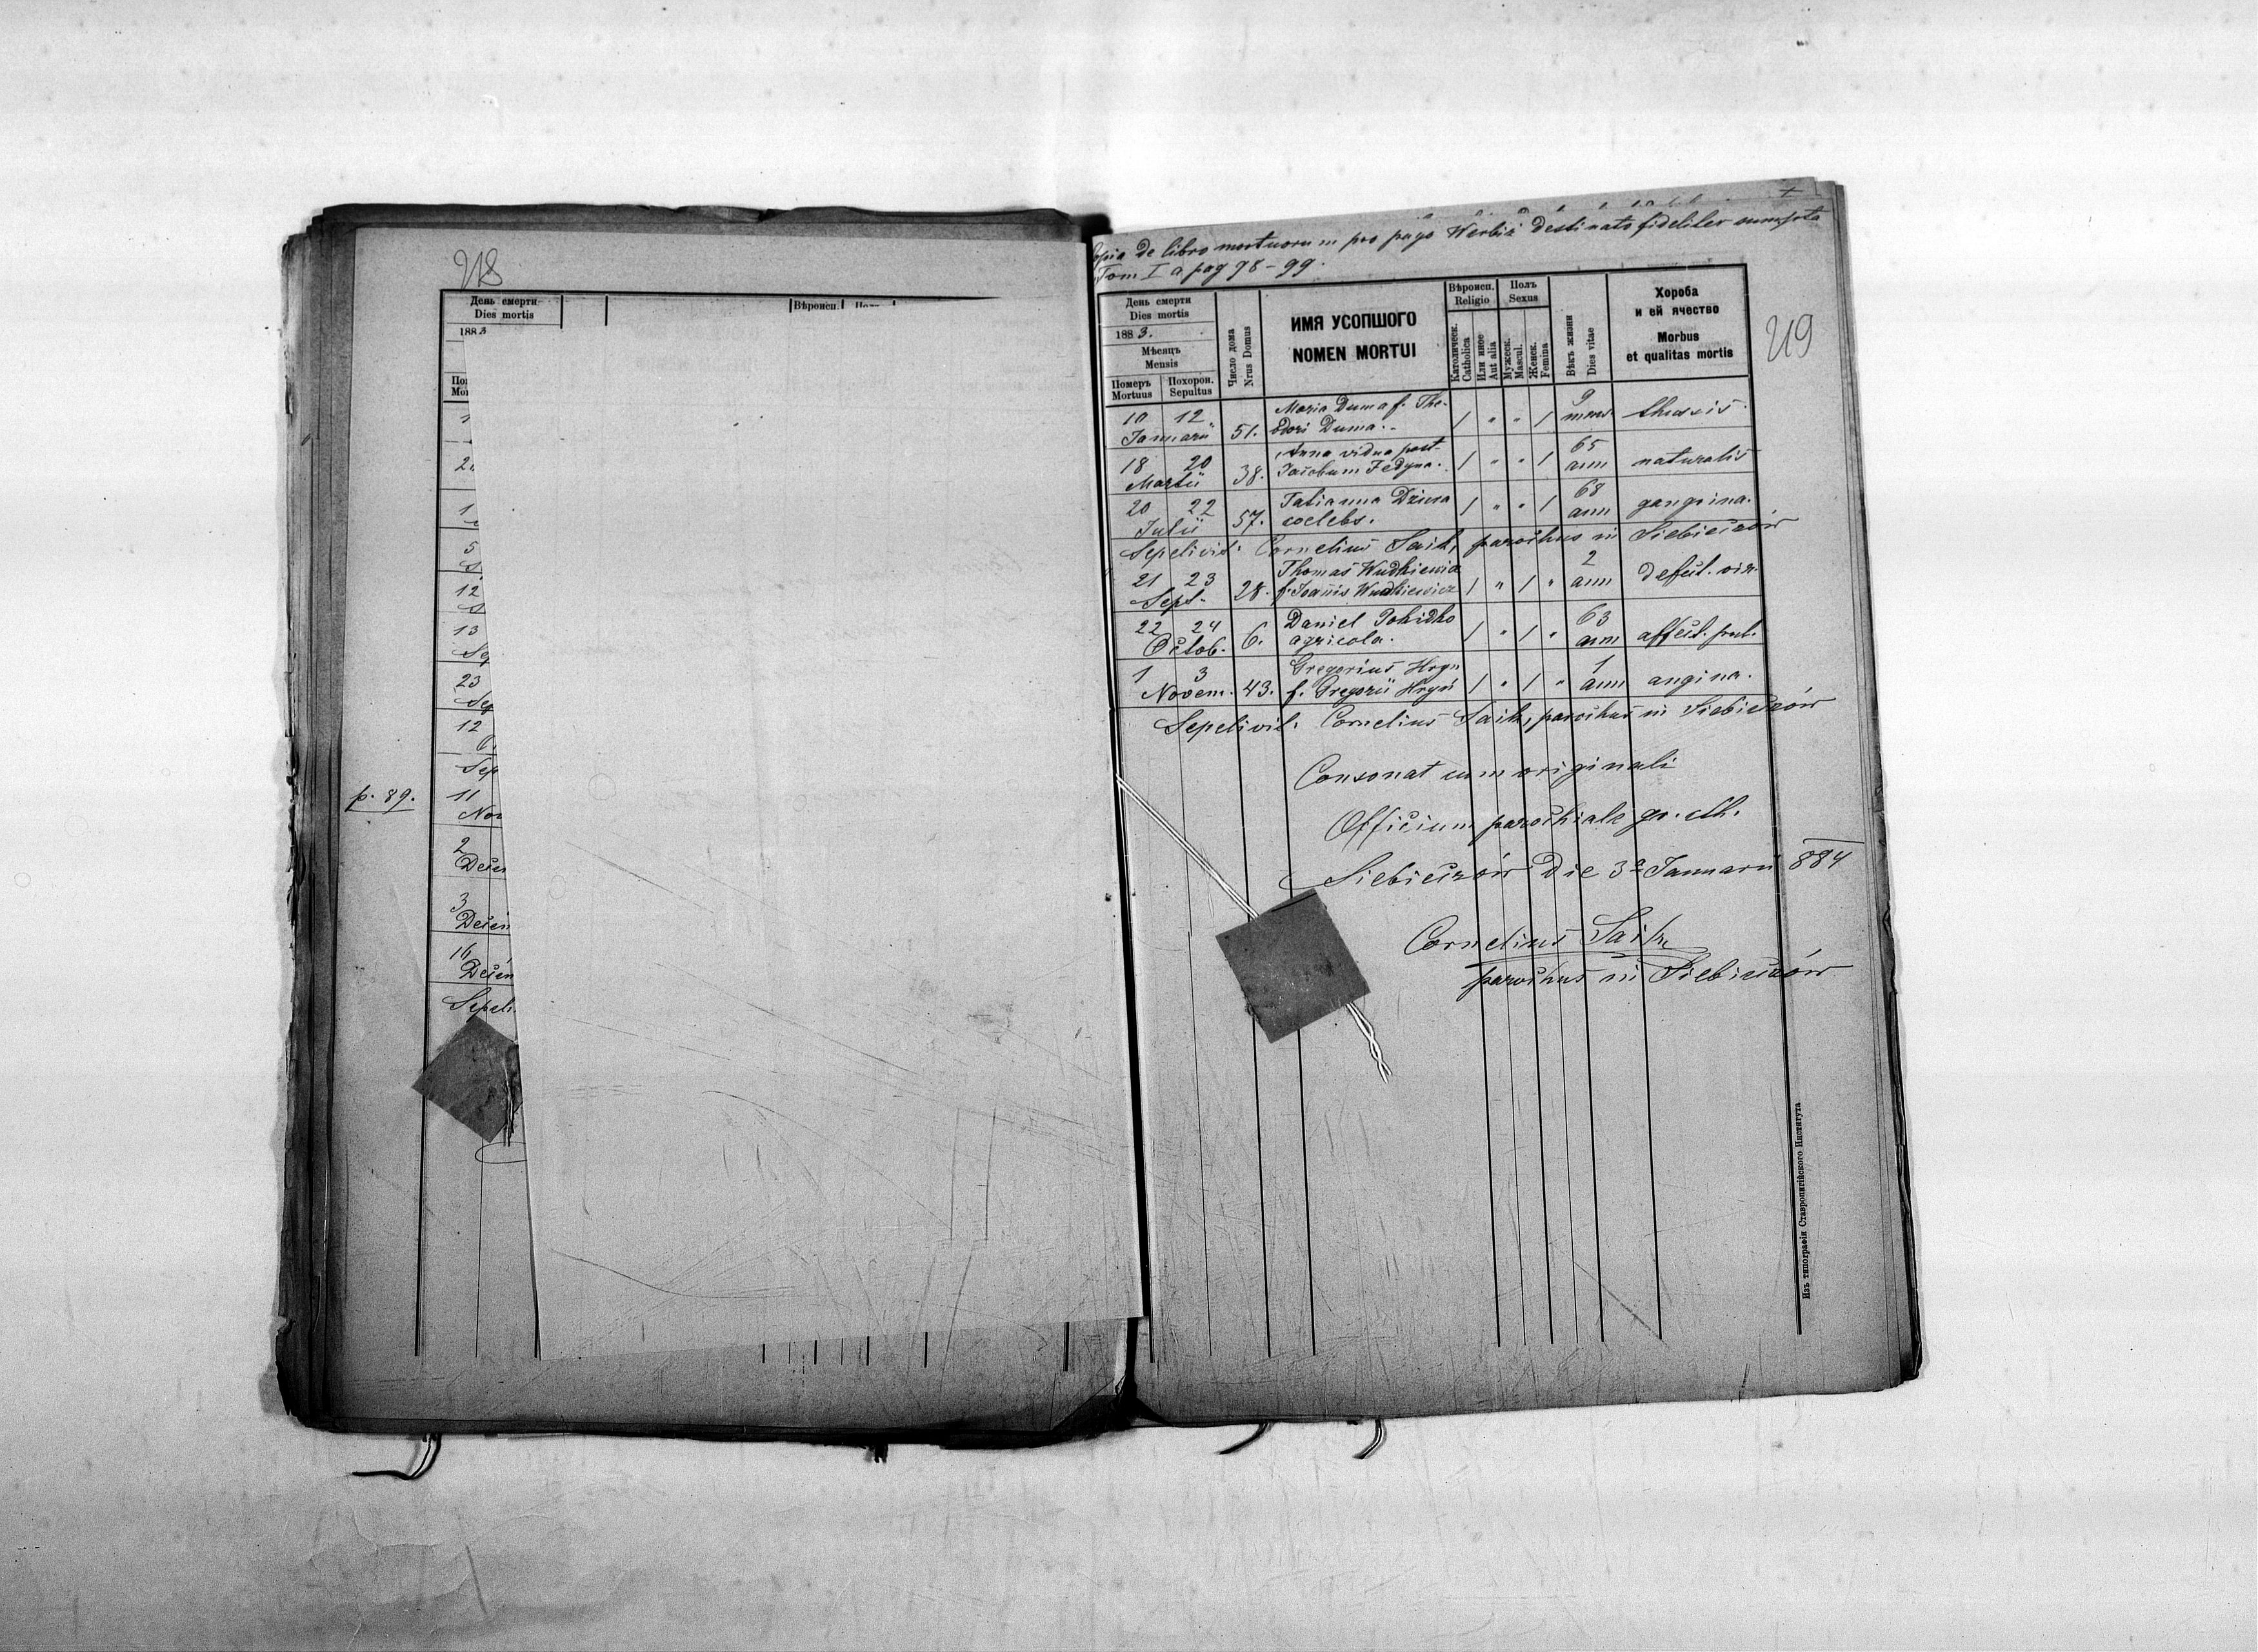 218
День смерти
Dies mortis
1883
Вѣроисп.
p. 89.
11
Nov
2
Decem
3
Decem
16
Decem
Sepeli
Copia de libro mortuorum pro pago Werbiż destinato fideliter sumpta
Tom I a pag 98-99.
219
День смерти
Dies mortis
1883.
Мѣсяць
Mensis
Померъ
Mortuus
Похорон.
Sepultus
Число дома
Nrus Domus
ИМЯ УСОПШОГО
NOMEN MORTUI
Вѣроисп.
Religio
Католическ.
Catholica
Или иное
Aut alia
Полъ
Sexus
Мужеск.
Mascul.
Женск.
Femina
Вѣкъ жизни
Dies vitae
Хороба
и ей ячество
Morbus
et qualitas mortis
10 12 Maria Duma f. The- 9
Januarii 51. odori Duma.- / " " / mens.
18 20 Anna vidua post 65
Martii 38. Jacobum Fedyna. / " " / ann naturalis
20 22 Tatianna Dziura 68
Julii 57. coelebs. / " " / ann gangrina.
Sepelivit: Cornelius Saik, parochus in Siebieczów
21 23 Thomas Wudkiewicz 2
Sept. 28. f. Joannis Wudkiewicz / " / " ann defect. vir.
22 24 Daniel 63
Octob. 6. agricola. / " / " ann affect. pul.
1 3 Gregorius Hryn 1
Novem. 43. f. Gregorii Hryń / " / " ann angina.
Sepelivit: Cornelius Saik, parochus in Siebieczów
Consonat cum originali
Officium parochiale gr. cth.
Siebieczów Die 3a Januarii 884
Cornelius Saik
parochus in Siebieczów
Изъ типографіи Ставропигійского Института